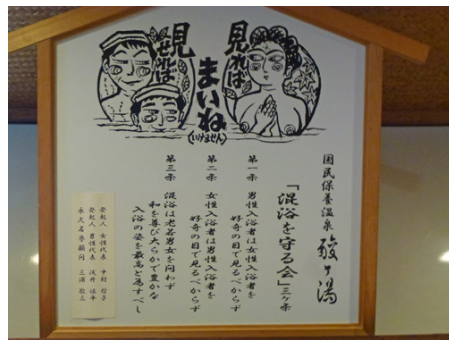 見れば
見せれば
まいね
(いけません)
国民保養温泉 酸ヶ湯
「混浴を守る会」三ヶ条
第一条 男性入浴者は女性入浴者を
好奇の目で見るべからず
第二条 女性入浴者は男性入浴者を
好奇の目で見るべからず
第三条 混浴は老若男女を問わず
和を尊び大らかで豊かな
入浴の姿を最高と為すべし
発起人 女性代表
発起人 男性代表
永久名誉顧問 三浦敬三